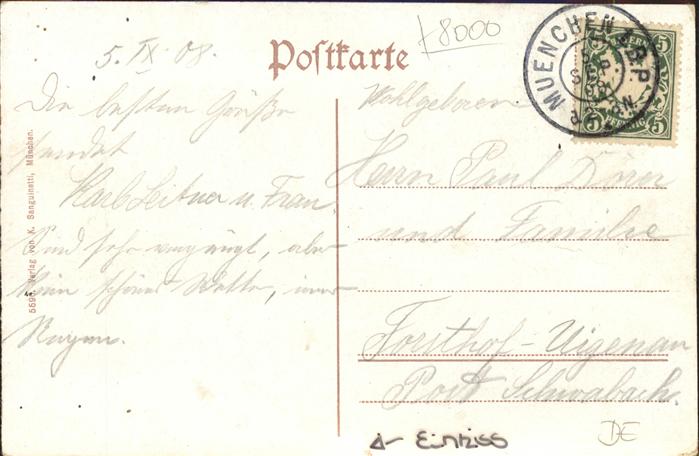 5. IX. 08.
Postkarte
8000
MUENCHEN B.P.
5 5
PFENNIG
Die besten Grüße
sendet
Karl Leitner u. Frau.
Sind sehr vergnügt, aber
kein schönes Wetter, immer
Regen.
Wohlgeboren
Herrn Paul
und Familie
Forsthof-Uigenau
Post Schwabach.
Verlag von K. Sanguinetti, München.
Einriss
DE